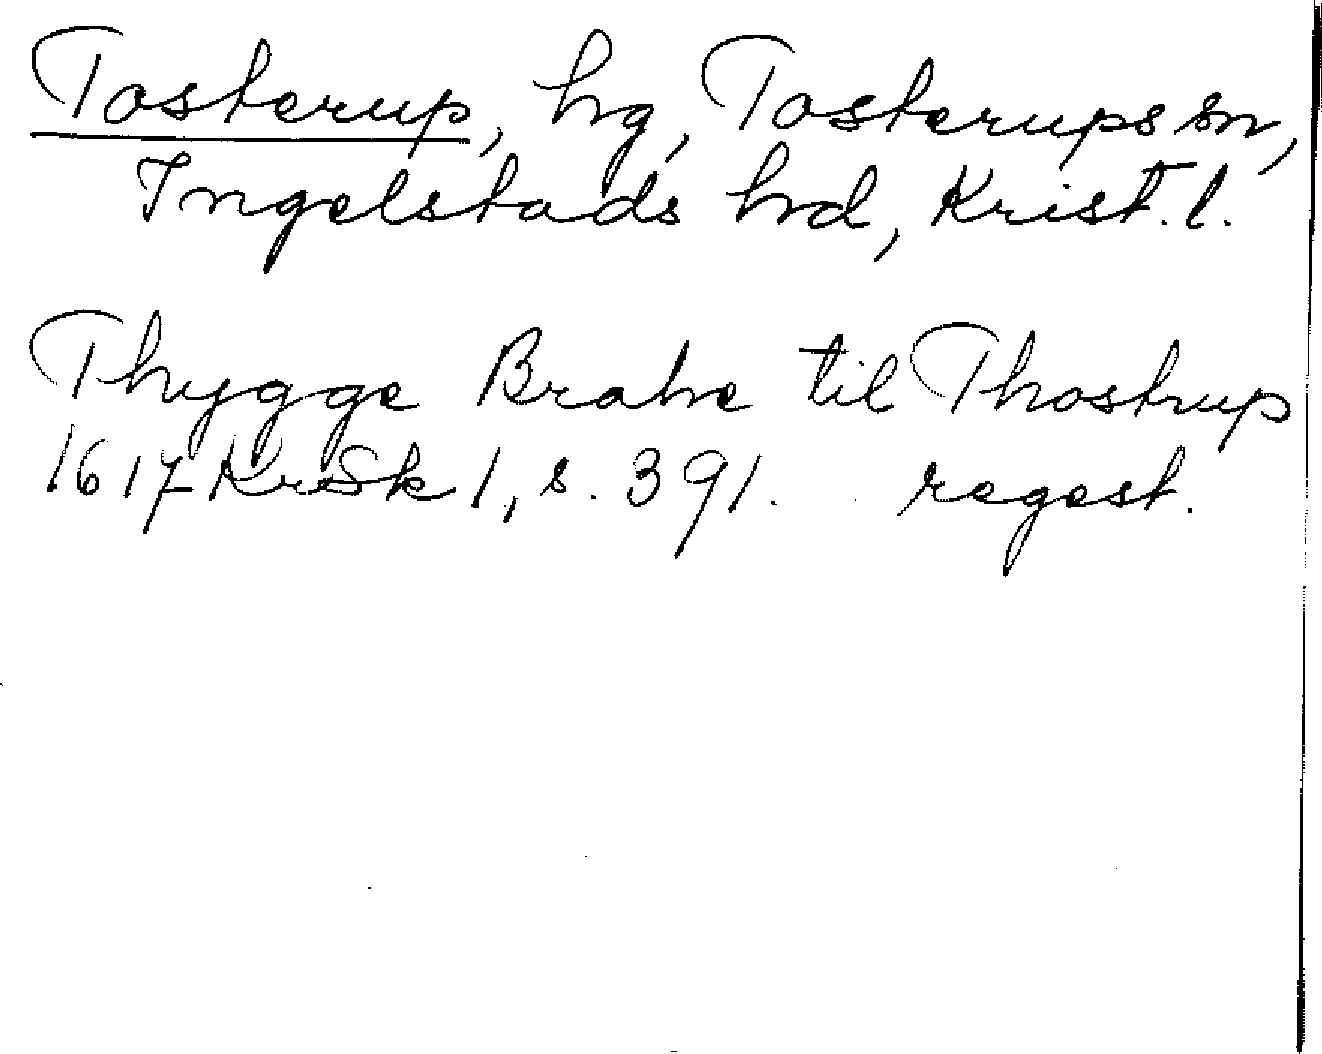 Tosterup, hg, Tosterups sn,
Ingelstads hrd, Krist. l.
Thygge Brahe til Thostrup
1617 KrSk 1, s. 391. regest.